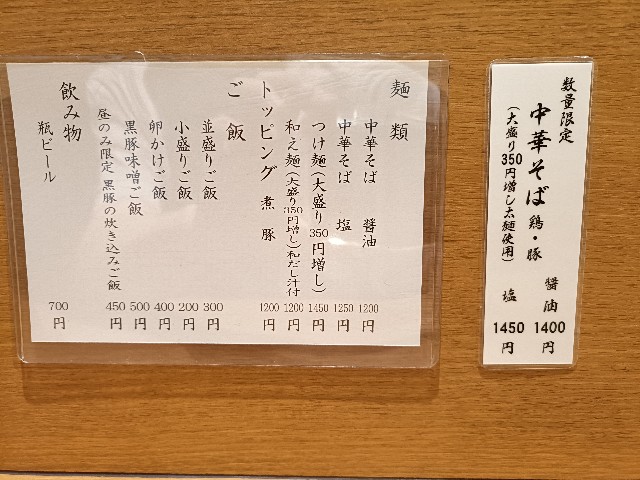 数量限定
中華そば 鶏・豚 醤油 1400円
(大盛り350円増し太麺使用) 塩 1450円
麺類
中華そば 醤油 1200円
中華そば 塩 1250円
つけ麺(大盛り350円増し) 1450円
和え麺(大盛り350円増し)和だし汁付 1200円
トッピング 煮豚 1200円
ご飯
並盛りご飯 300円
小盛りご飯 200円
卵かけご飯 400円
黒豚味噌ご飯 500円
昼のみ限定 黒豚の炊き込みご飯 450円
飲み物
瓶ビール 700円